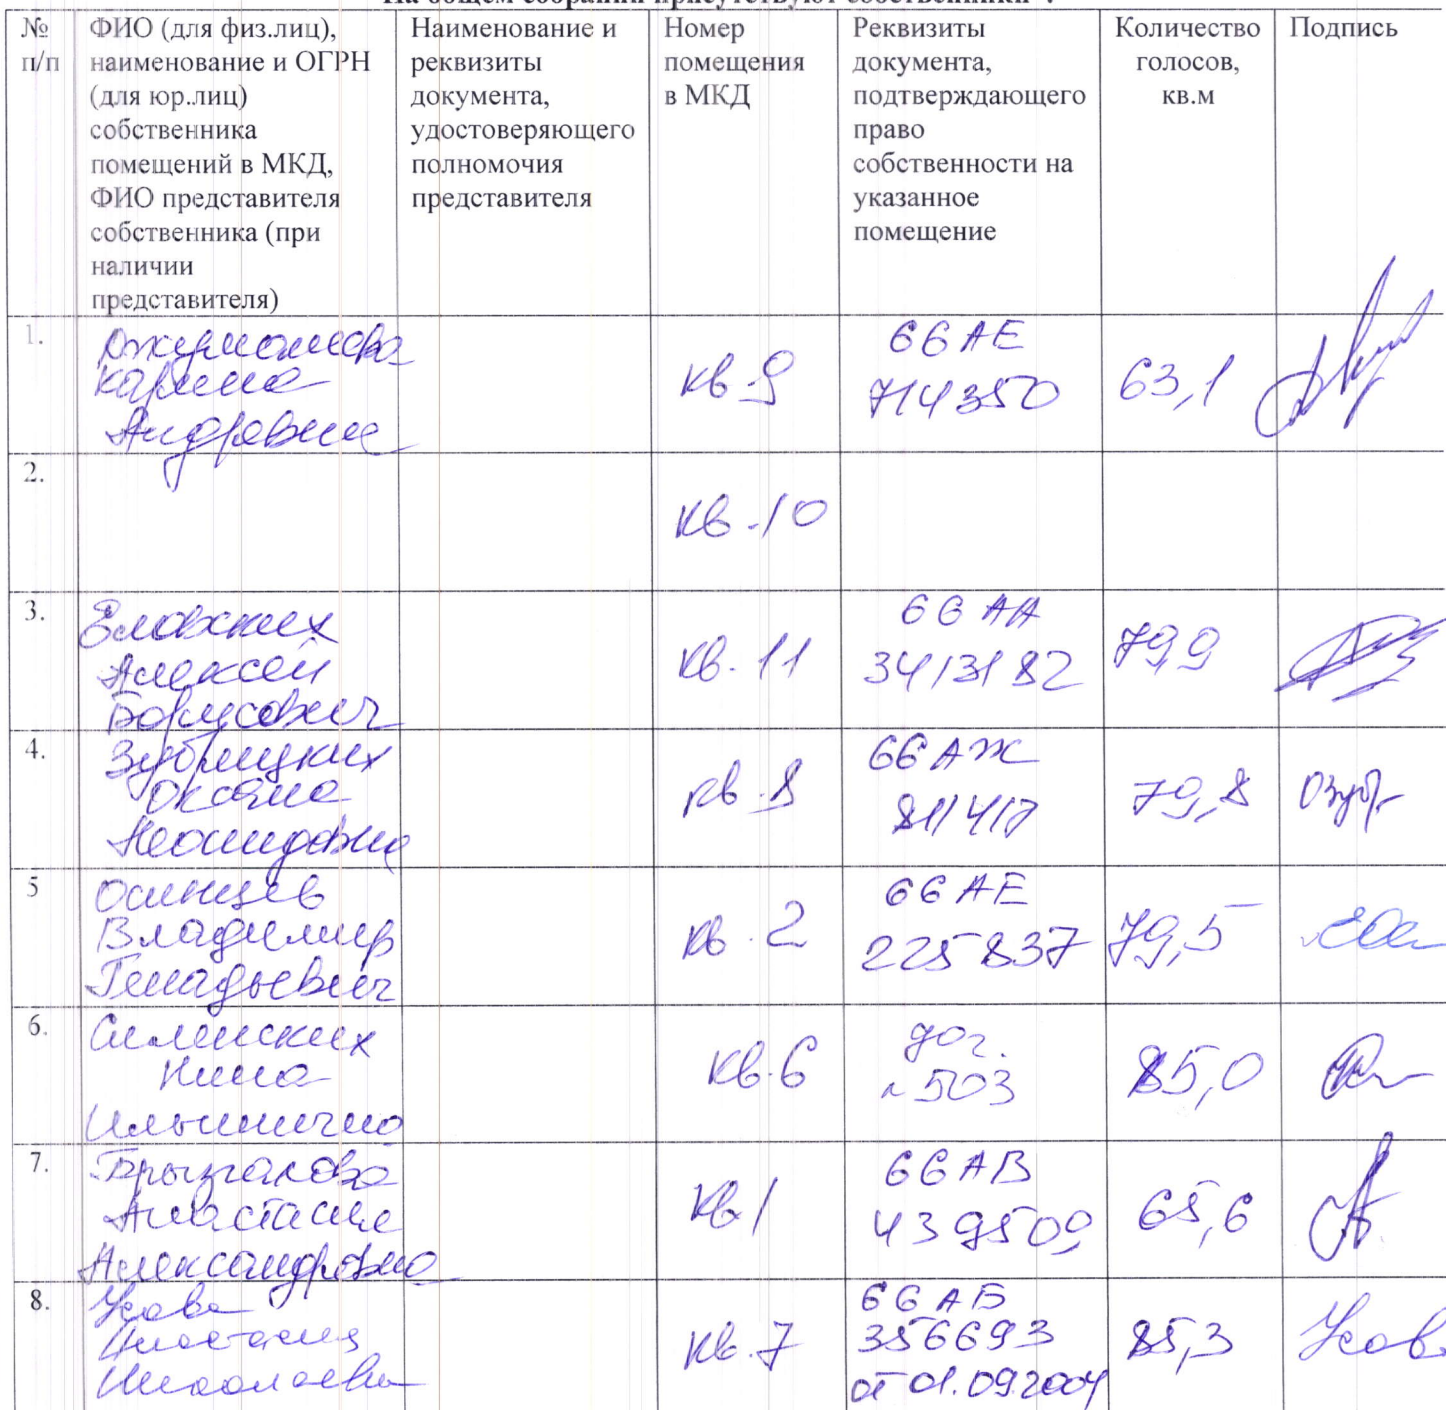 На общем собрании присутствуют собственники
№ п/п
ФИО (для физ.лиц), наименование и ОГРН (для юр.лиц) собственника помещений в МКД, ФИО представителя собственника (при наличии представителя)
Наименование и реквизиты документа, удостоверяющего полномочия представителя
Номер помещения в МКД
Реквизиты документа, подтверждающего право собственности на указанное помещение
Количество голосов, кв.м
Подпись
1.
Карина
Андревна
кв.9
66 АЕ
714350
63,1
2.
кв.10
3.
Еловских
Алексей
Борисович
кв.11
66 АА
3413182
79,9
4.
Зубрицких
Оксана
Леонидовна
кв.8
66 АЖ
811417
79,8
5
Осинцев
Владимир
Генадьевич
кв.2
66 АЕ
225837
79,5
6.
Силинских
Нина
Ильинична
кв.6
дог.
№503
85,0
7.
Брызгалова
Анастасия
Александровна
кв1
66 АВ
439509
65,6
8.
Усова
Анастасия
Николаевна
кв.7
66 АБ
356693
от 01.09.2004
85,3
Усов